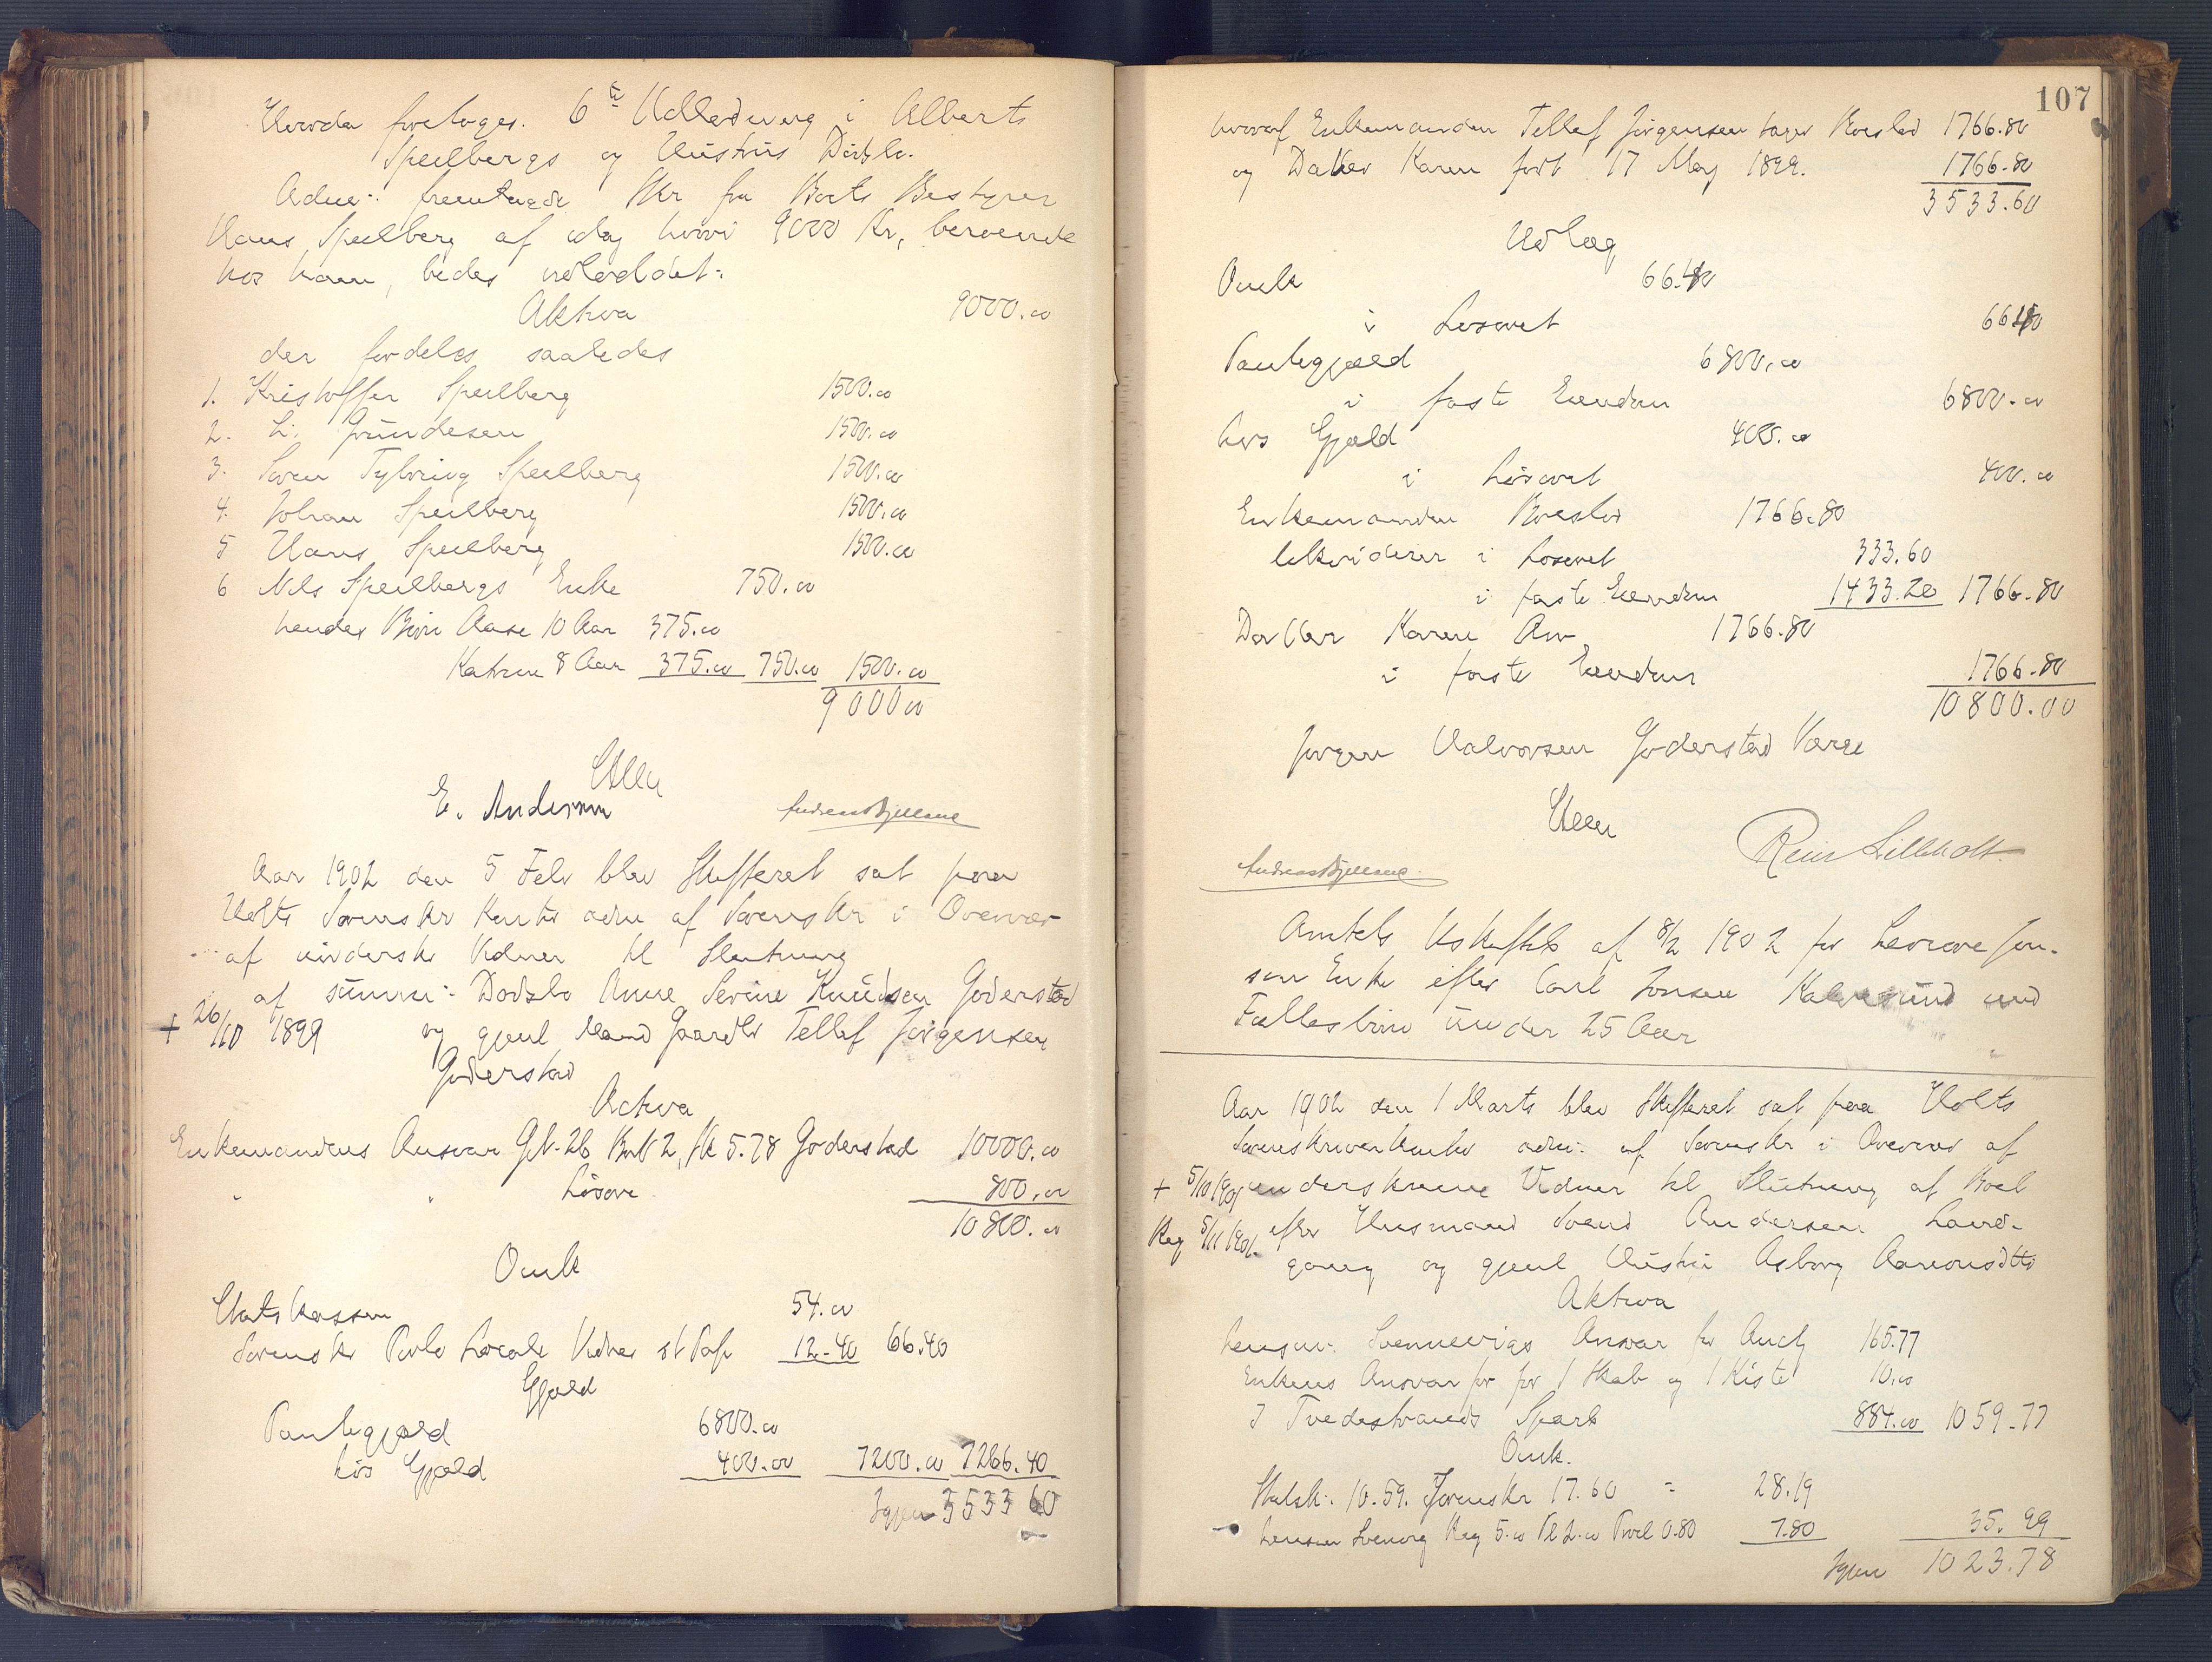 Hvorda foretoges. 6te Udlodning i Alberts
Speilbergs og Hustrus Dødsbo.
Adm: fremlagde Skr fra Boets Bestyrer
Hans Speilberg af idag hvori 9000 Kr, beroende
hos ham, bedes udloddet:
Aktiva 9000.00
der fordeles saaledes
1. Kristoffer Speilberg 1500.00
2. L. Gundesen 1500.00
3. Søren Tybring Speilberg 1500.00
4. Johan Speilberg 1500.00
5 Hans Speilberg 1500.00
6 Nils Speilbergs Enke 750.00
hendes Børn Aase 10 Aar 375.00
Katrine 8 Aar 375.00 750.00 1500.00
9000.00
E. Andersen
Aar 1902 den 5 Feb blev Skifteret sat paa
Holts Sorenskr Kontor adm af Sorenskr i Overvær
af underskr Vidner til Slutning
af summ: Dødsbo Anne Serine Knudsen Goderstad
+ 26/10 1899 og gjenl Mand Gaardbr Tellef Jørgensen
Goderstad
Activa
Enkemandens Ansvar Gn. 26 Bn 2, Sk 5.78 Goderstad 10000.00
" " Løsøre 800.00
10800.00
Omk
Statskassen 54.00
Sorenskr Porto Locale Vidner st Pap 12.40 66.40
Gjæld
Pantegjæld 6800.00
Løs Gjæld 400.00 7200.00 7266.40
Igjen 3533 60
107
hvoraf Enkemanden Tellef Jørgensen tager Boeslod 1766.80
og Datter Karen født 17 May 1899. 1766.80
3533.60
Udlæg
Omk 66.40
i Løsøret 66.40
Pantegjæld 6800.00
i faste Eiendom 6800.00
Løs Gjæld 400.00
i Løsøret 400.00
Enkemanden Boeslod 1766.80
likviderer i Løsøret 333.60
i faste Eiendom 1433.20 1766.80
Datter Karen Arv 1766.80
i faste Eiendom 1766.80
10800.00
Jørgen Halvorsen Goderstad Værge
Amtets Uskiftebev af 8/2 1902 for Lovise Jon-
sen Enke efter Carl Jonsen Kalvesund med
Fællesbørn under 25 Aar
Aar 1902 den 1 Marts blev Skifteret sat paa Holts
Sorenskriverkontor adm: af Sorenskr i Overvær af
+ 5/10 1901 underskrevne Vidner til Slutning af Boet
Reg 5/11 1901. efter Husmand Svend Andersen Land-
gang og gjenl Hustru Asborg Aanonsdtr
Aktiva
Lensm: Svennevigs Ansvar for Auct 165.77
Enkens Ansvar for for 1 Skab og 1 Kiste 10.00
I Tvedestrands Sparb 884.00 1059.77
Omk.
Statsk: 10.59. Sorenskr 17.60 = 28.19
Lensm Svenvig Reg 5.00 2.00 0.80 7.80 35.99
Igjen 1023.78